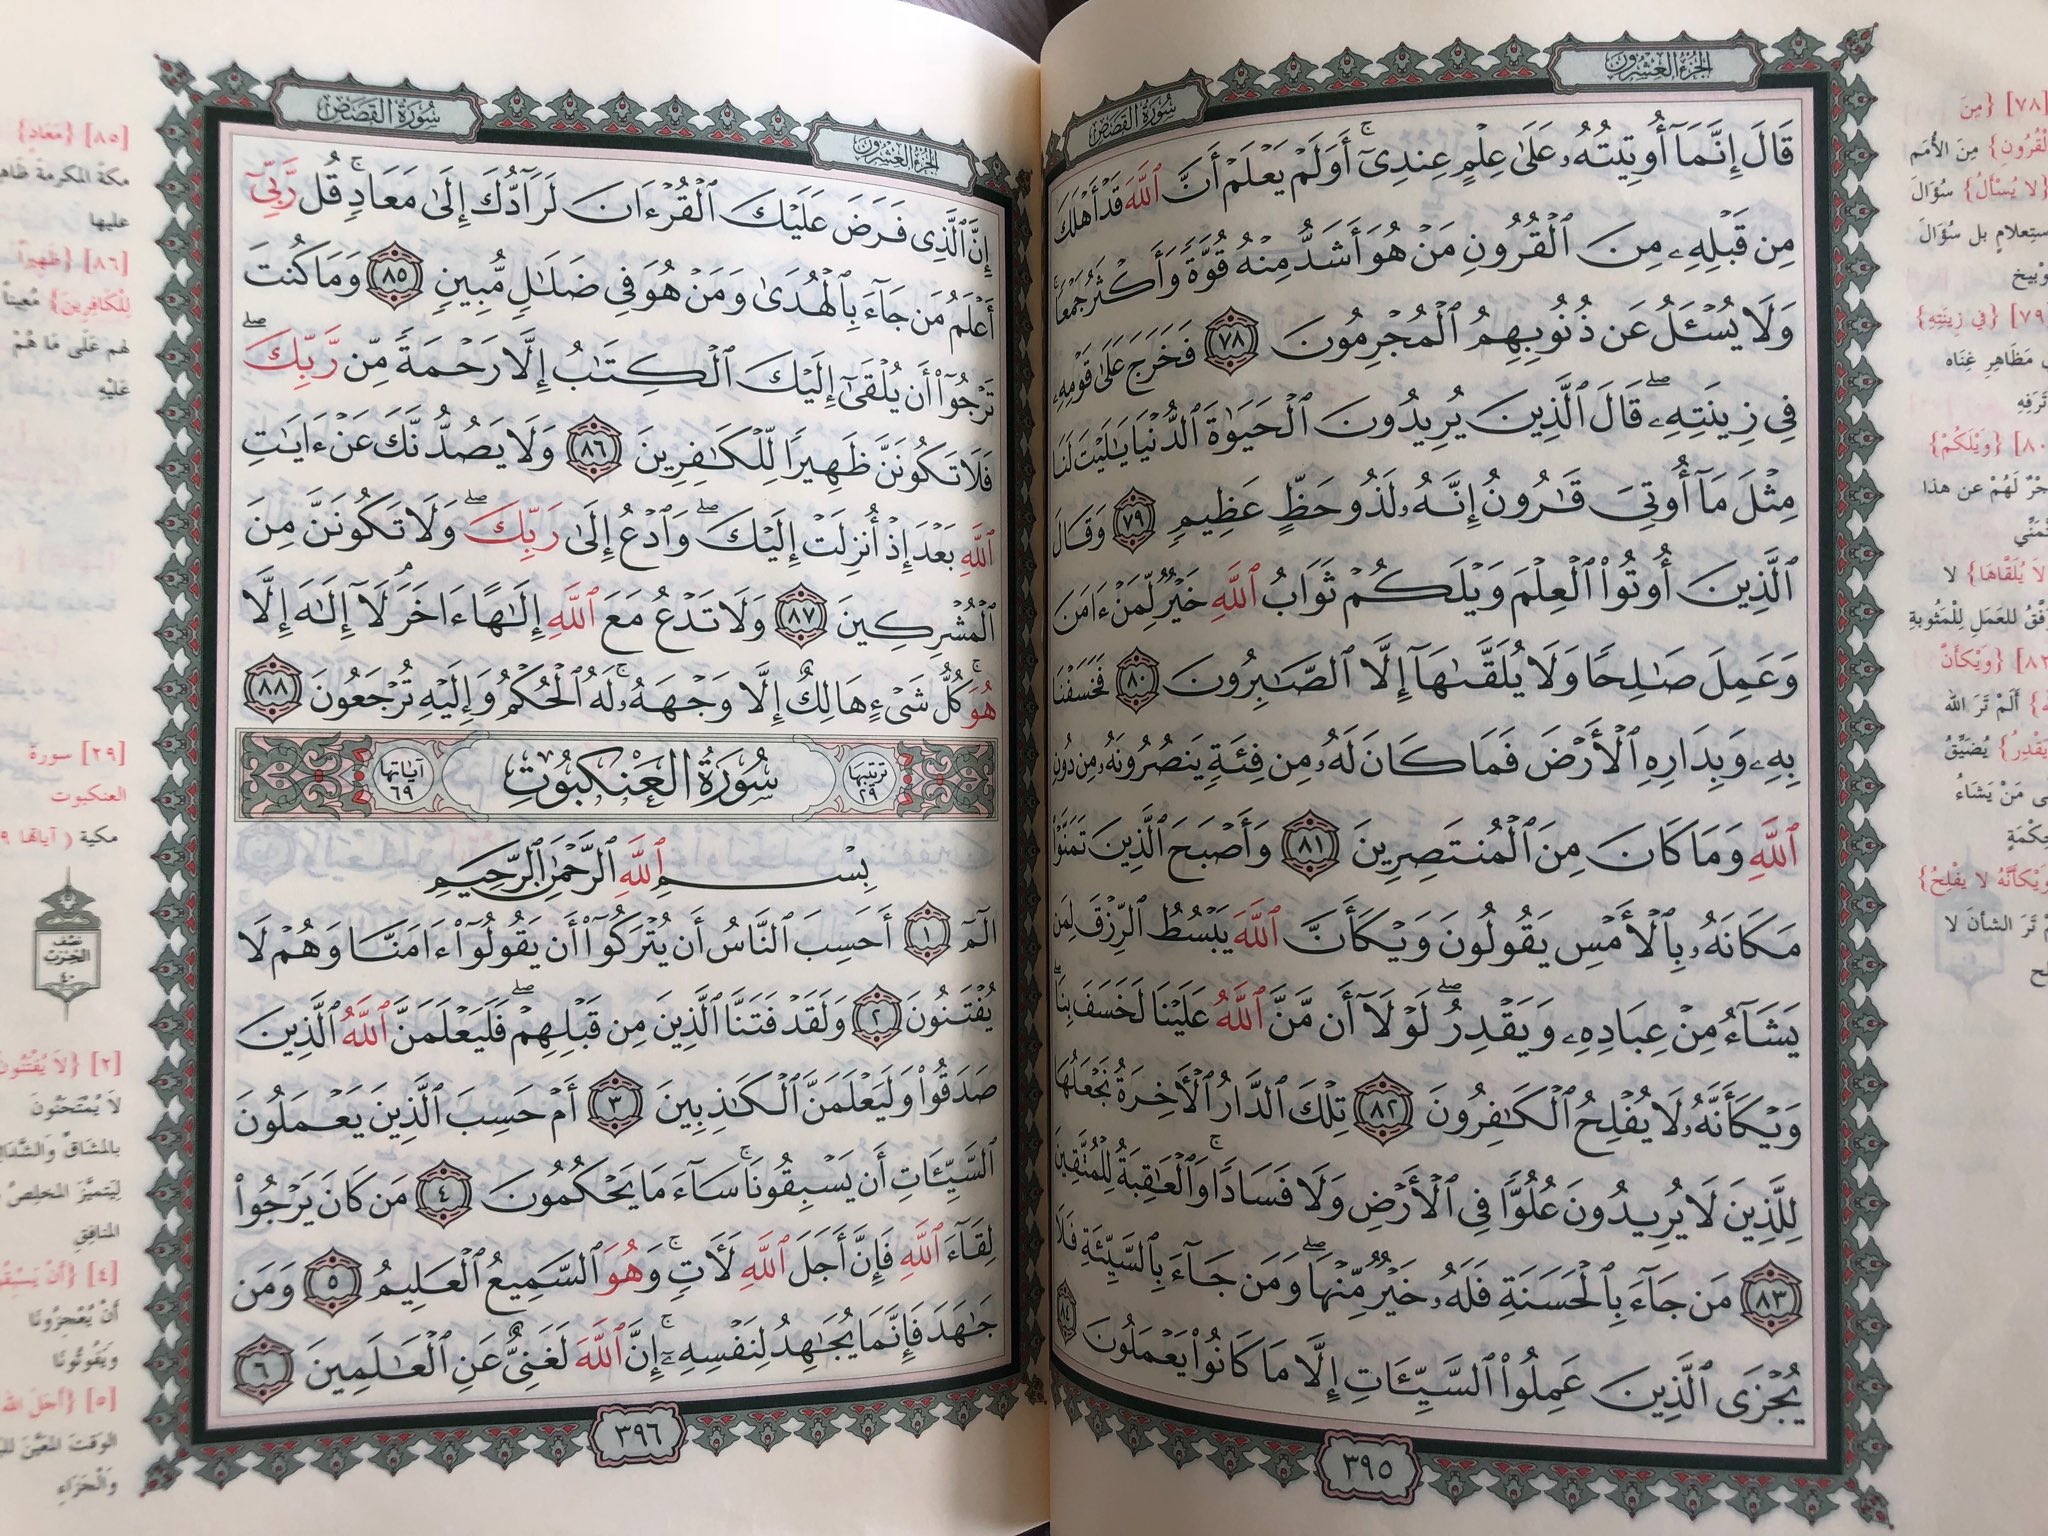 الجزء العشرون
سورة القصص
قَالَ إِنَّمَآ أُوتِيتُهُۥ عَلَىٰ عِلْمٍ عِندِىٓ ۚ أَوَلَمْ يَعْلَمْ أَنَّ ٱللَّهَ قَدْ أَهْلَكَ
مِن قَبْلِهِۦ مِنَ ٱلْقُرُونِ مَنْ هُوَ أَشَدُّ مِنْهُ قُوَّةً وَأَكْثَرُ جَمْعًا ۚ
وَلَا يُسْـَٔلُ عَن ذُنُوبِهِمُ ٱلْمُجْرِمُونَ ٧٨ فَخَرَجَ عَلَىٰ قَوْمِهِۦ
فِى زِينَتِهِۦ ۖ قَالَ ٱلَّذِينَ يُرِيدُونَ ٱلْحَيَوٰةَ ٱلدُّنْيَا يَـٰلَيْتَ لَنَا
مِثْلَ مَآ أُوتِىَ قَـٰرُونُ إِنَّهُۥ لَذُو حَظٍّ عَظِيمٍ ٧٩ وَقَالَ
ٱلَّذِينَ أُوتُوا۟ ٱلْعِلْمَ وَيْلَكُمْ ثَوَابُ ٱللَّهِ خَيْرٌ لِّمَنْ ءَامَنَ
وَعَمِلَ صَـٰلِحًا وَلَا يُلَقَّىٰهَآ إِلَّا ٱلصَّـٰبِرُونَ ٨٠ فَخَسَفْنَا
بِهِۦ وَبِدَارِهِ ٱلْأَرْضَ فَمَا كَانَ لَهُۥ مِن فِئَةٍ يَنصُرُونَهُۥ مِن دُونِ
ٱللَّهِ وَمَا كَانَ مِنَ ٱلْمُنتَصِرِينَ ٨١ وَأَصْبَحَ ٱلَّذِينَ تَمَنَّوْا۟
مَكَانَهُۥ بِٱلْأَمْسِ يَقُولُونَ وَيْكَأَنَّ ٱللَّهَ يَبْسُطُ ٱلرِّزْقَ لِمَن
يَشَآءُ مِنْ عِبَادِهِۦ وَيَقْدِرُ ۖ لَوْلَآ أَن مَّنَّ ٱللَّهُ عَلَيْنَا لَخَسَفَ بِنَا ۖ
وَيْكَأَنَّهُۥ لَا يُفْلِحُ ٱلْكَـٰفِرُونَ ٨٢ تِلْكَ ٱلدَّارُ ٱلْـَٔاخِرَةُ نَجْعَلُهَا
لِلَّذِينَ لَا يُرِيدُونَ عُلُوًّا فِى ٱلْأَرْضِ وَلَا فَسَادًا ۚ وَٱلْعَـٰقِبَةُ لِلْمُتَّقِينَ
٨٣ مَن جَآءَ بِٱلْحَسَنَةِ فَلَهُۥ خَيْرٌ مِّنْهَا ۖ وَمَن جَآءَ بِٱلسَّيِّئَةِ فَلَا
يُجْزَى ٱلَّذِينَ عَمِلُوا۟ ٱلسَّيِّـَٔاتِ إِلَّا مَا كَانُوا۟ يَعْمَلُونَ ٨٤
٣٩٥
[٧٨] {مِنَ
الْقُرُونِ} مِنَ الأُمَمِ
{لا يُسْأَلُ} سُؤَالَ
بل سُؤَالَ
{فِي زِينَتِهِ}
مَظَاهِرِ غِنَاه
{وَيْلَكُمْ}
لَهُمْ عن هذا
{لا يُلَقَّاهَا} لا
للعَمَلِ لِلْمَثُوبةِ
{وَيْكَأَنَّ
أَلَمْ تَرَ الله
يُضَيِّقُ
مَنْ يَشَاءُ
لا يفْلِحُ}
تَرَ الشأنَ لا
الجزء العشرون
سورة القصص
إِنَّ ٱلَّذِى فَرَضَ عَلَيْكَ ٱلْقُرْءَانَ لَرَآدُّكَ إِلَىٰ مَعَادٍ ۚ قُل رَّبِّىٓ
أَعْلَمُ مَن جَآءَ بِٱلْهُدَىٰ وَمَنْ هُوَ فِى ضَلَـٰلٍ مُّبِينٍ ٨٥ وَمَا كُنتَ
تَرْجُوٓا۟ أَن يُلْقَىٰٓ إِلَيْكَ ٱلْكِتَـٰبُ إِلَّا رَحْمَةً مِّن رَّبِّكَ ۖ
فَلَا تَكُونَنَّ ظَهِيرًا لِّلْكَـٰفِرِينَ ٨٦ وَلَا يَصُدُّنَّكَ عَنْ ءَايَـٰتِ
ٱللَّهِ بَعْدَ إِذْ أُنزِلَتْ إِلَيْكَ ۖ وَٱدْعُ إِلَىٰ رَبِّكَ ۖ وَلَا تَكُونَنَّ مِنَ
ٱلْمُشْرِكِينَ ٨٧ وَلَا تَدْعُ مَعَ ٱللَّهِ إِلَـٰهًا ءَاخَرَ ۘ لَآ إِلَـٰهَ إِلَّا
هُوَ ۚ كُلُّ شَىْءٍ هَالِكٌ إِلَّا وَجْهَهُۥ ۚ لَهُ ٱلْحُكْمُ وَإِلَيْهِ تُرْجَعُونَ ٨٨
ترتيبها ٢٩ سورة العنكبوت آياتها ٦٩
بِسْمِ ٱللَّهِ ٱلرَّحْمَـٰنِ ٱلرَّحِيمِ
الٓمٓ ١ أَحَسِبَ ٱلنَّاسُ أَن يُتْرَكُوٓا۟ أَن يَقُولُوٓا۟ ءَامَنَّا وَهُمْ لَا
يُفْتَنُونَ ٢ وَلَقَدْ فَتَنَّا ٱلَّذِينَ مِن قَبْلِهِمْ ۖ فَلَيَعْلَمَنَّ ٱللَّهُ ٱلَّذِينَ
صَدَقُوا۟ وَلَيَعْلَمَنَّ ٱلْكَـٰذِبِينَ ٣ أَمْ حَسِبَ ٱلَّذِينَ يَعْمَلُونَ
ٱلسَّيِّـَٔاتِ أَن يَسْبِقُونَا ۚ سَآءَ مَا يَحْكُمُونَ ٤ مَن كَانَ يَرْجُوا۟
لِقَآءَ ٱللَّهِ فَإِنَّ أَجَلَ ٱللَّهِ لَـَٔاتٍ ۚ وَهُوَ ٱلسَّمِيعُ ٱلْعَلِيمُ ٥ وَمَن
جَـٰهَدَ فَإِنَّمَا يُجَـٰهِدُ لِنَفْسِهِۦٓ ۚ إِنَّ ٱللَّهَ لَغَنِىٌّ عَنِ ٱلْعَـٰلَمِينَ ٦
٣٩٦
[٨٥] {مَعَادٍ}
مكة المكرمة
عليها
[٨٦] {ظهيراً
لِلْكَافِرِينَ} مُعيناً
لهم عَلَى مَا هُمْ
عَلَيْهِ
[٢٩] سورة
العنكبوت
مكية (آياتها
نصف
الحزب
٤٠
[٢] {لاَ يُفْتَنُونَ
لاَ يُمْتَحَنُونَ
بالمشَاقِّ وَالشَّدَائِ
لِيَتميَّزَ المخلِصُ
المنافِقِ
[٤] {أَنْ
أَنْ يُعْجِزُونَا
وَيَفُوتُونَا
[٥] {أَجَلَ الله
الوَقتَ المُعَيَّنَ
وَالْجَزَاءِ